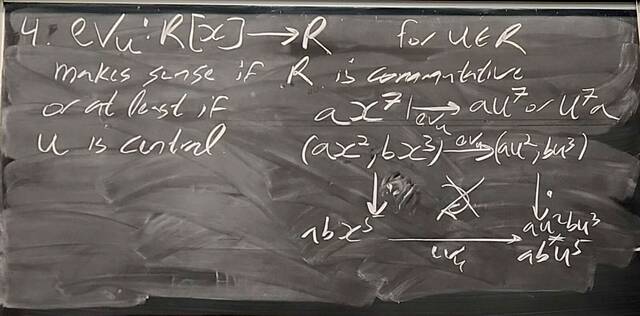 4. ev_u: R[x] → R for u ∈ R
makes sense if R is commutative
or at least if ax^7 |→ au^7 or u^7a
ev_u
u is central (ax^2, bx^3) →ev_u (au^2, bu^3)
↓ ↓ .
abx^5 → au^2bu^3
ev_u ≠
abu^5